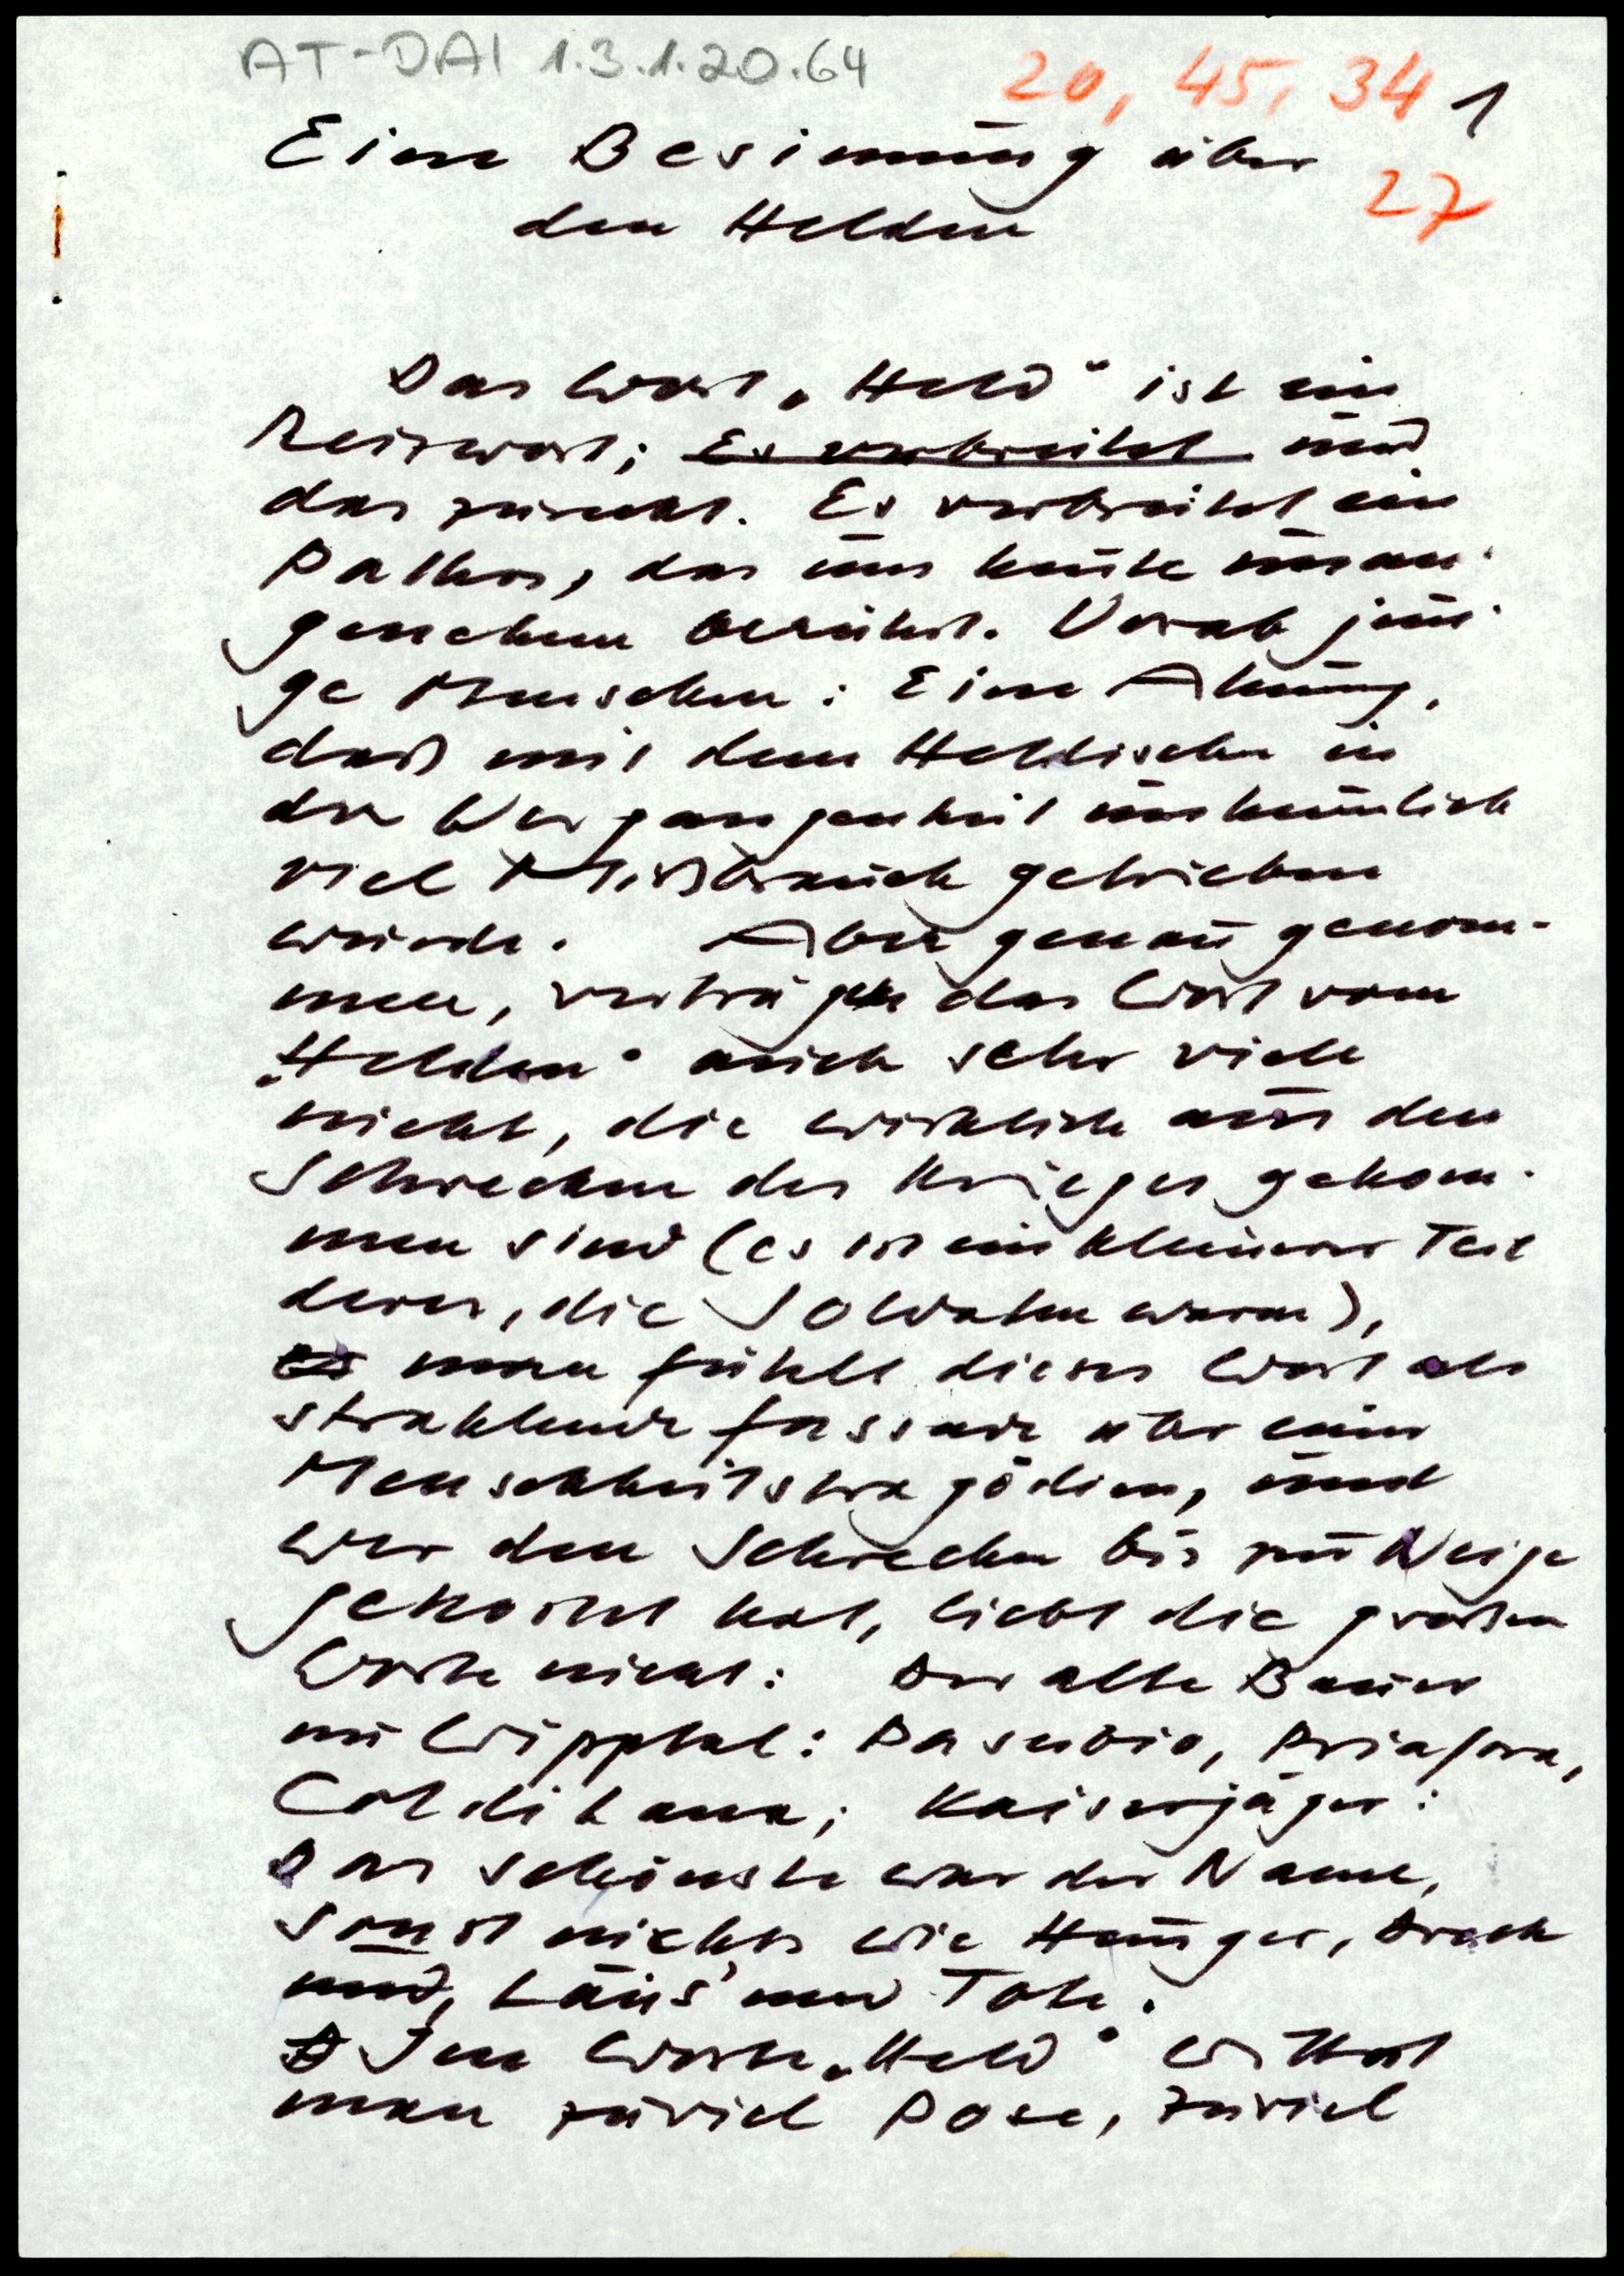 AT-DAI 1.3.1.20.64
20, 45, 34 1
Eine Besinnung über
27
den Helden
Das Wort „Held“ ist ein
Reizwort; Es verbreitet und
das zurecht. Es verbreitet ein
Pathos, das uns heute unan-
genehm berührt. Vorab jun-
ge Menschen: Eine Ahnung,
daß mit dem Heldischen in
der Vergangenheit unheimlich
viel Mißbrauch getrieben
wurde. Aber genau genom-
men, vertragen das Wort vom
„Helden“ auch sehr viele
nicht, die wirklich aus den
Schrecken des Krieges gekom-
men sind (es ist ein kleinerer Teil
derer, die Soldaten waren),
es man fühlt dieses Wort als
strahlende Fassade über einer
Menschheitstragödien, und
wer den Schrecken bis zur Neige
gekostet hat, liebt die großen
Worte nicht: Der alte Bauer
im Wipptal: Pasubio, Priafora,
Col di Lana; Kaiserjäger:
Das schönste war der Name,
sonst nichts wie Hunger, Dreck
und, Läus' und Tote.
Im Worte „Held“ wittert
man zuviel Pose, zuviel